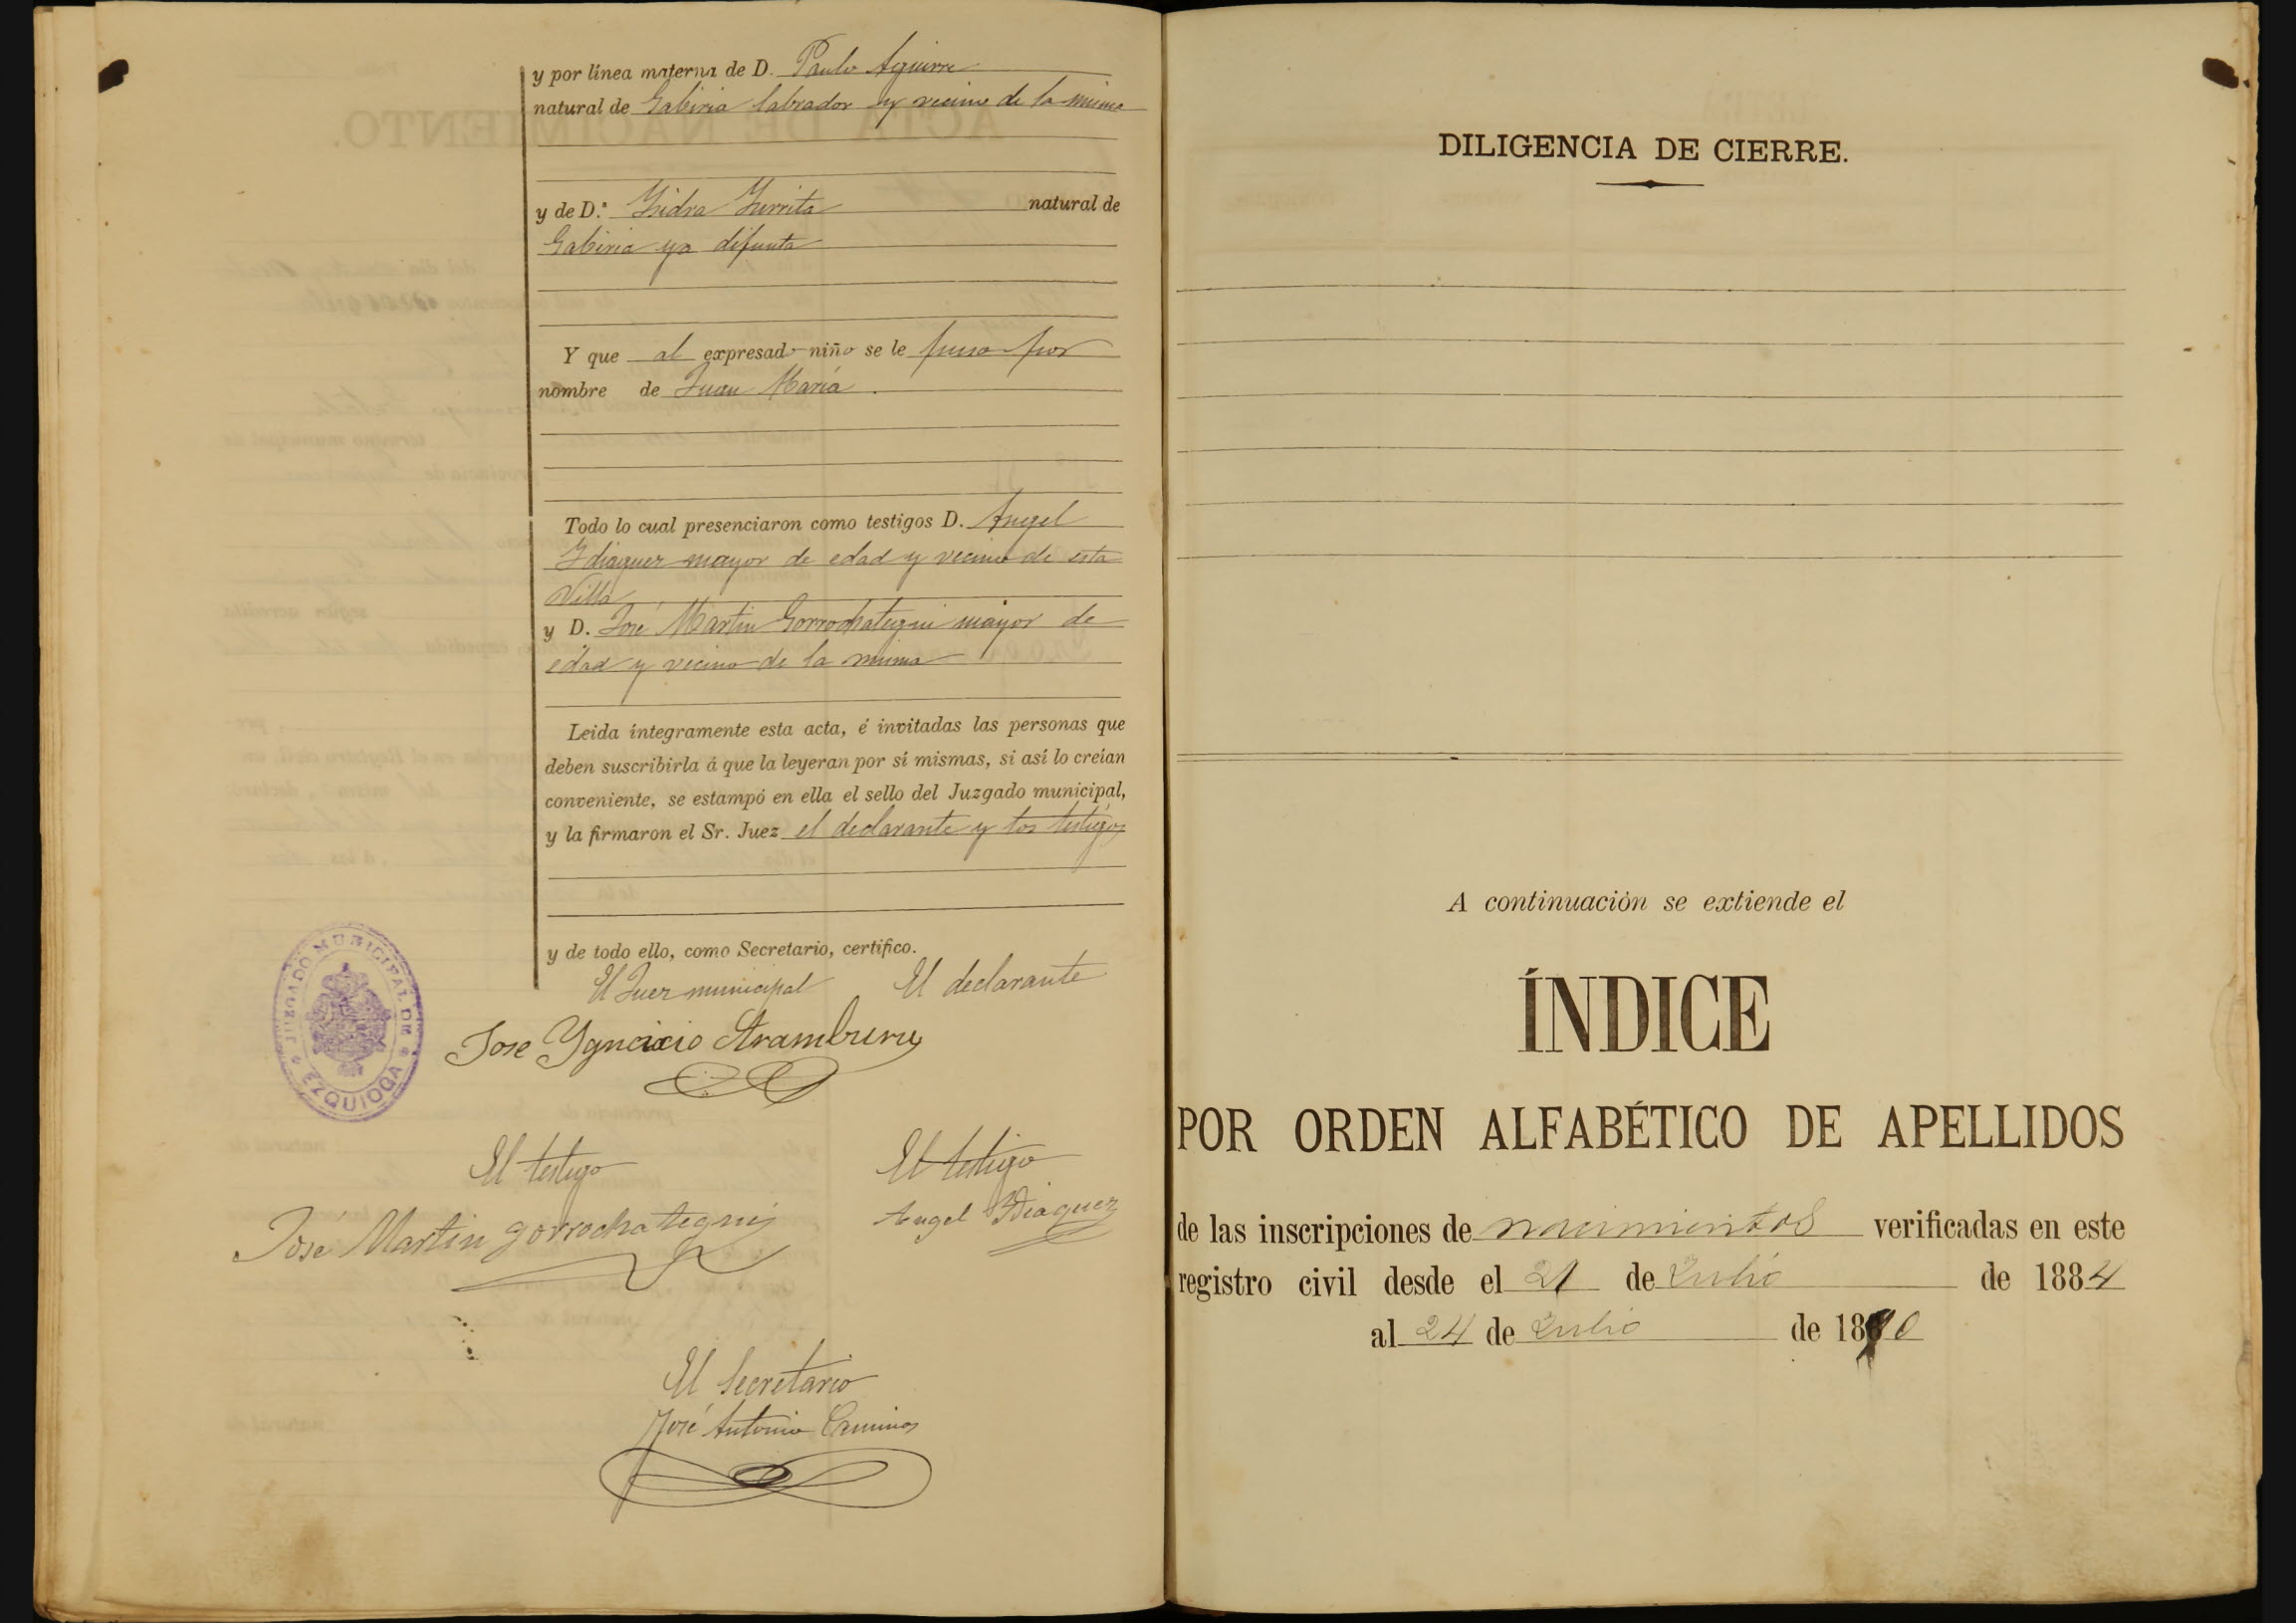 y por línea materna de D. Paulo Aguirre
natural de Gabiria labrador y vecino de la misma
y de D.ª Ysidra Yurrita natural de
Gabiria ya difunta
Y que al expresado niño se le puso por
nombre de Juan María.
Todo lo cual presenciaron como testigos D. Angel
Ydiaquez mayor de edad y vecino de esta
Villa
y D. José Martin Gorrochategui mayor de
edad y vecino de la misma
Leida íntegramente esta acta, é invitadas las personas que
deben suscribirla á que la leyeran por sí mismas, si así lo creían
conveniente, se estampó en ella el sello del Juzgado municipal,
y la firmaron el Sr. Juez el declarante y los testigos
y de todo ello, como Secretario, certifico.
El Juez municipal El declarante
Jose Ygnacio Aramburu
JUZGADO MUNICIPAL DE EZQUIOGA
El testigo El testigo
José Martin gorrochategui Angel Ydiaquez
El Secretario
José Antonio
DILIGENCIA DE CIERRE.
A continuación se extiende el
ÍNDICE
POR ORDEN ALFABÉTICO DE APELLIDOS
de las inscripciones de nacimientos verificadas en este
registro civil desde el 21 de Julio de 1884
al 24 de Julio de 1890